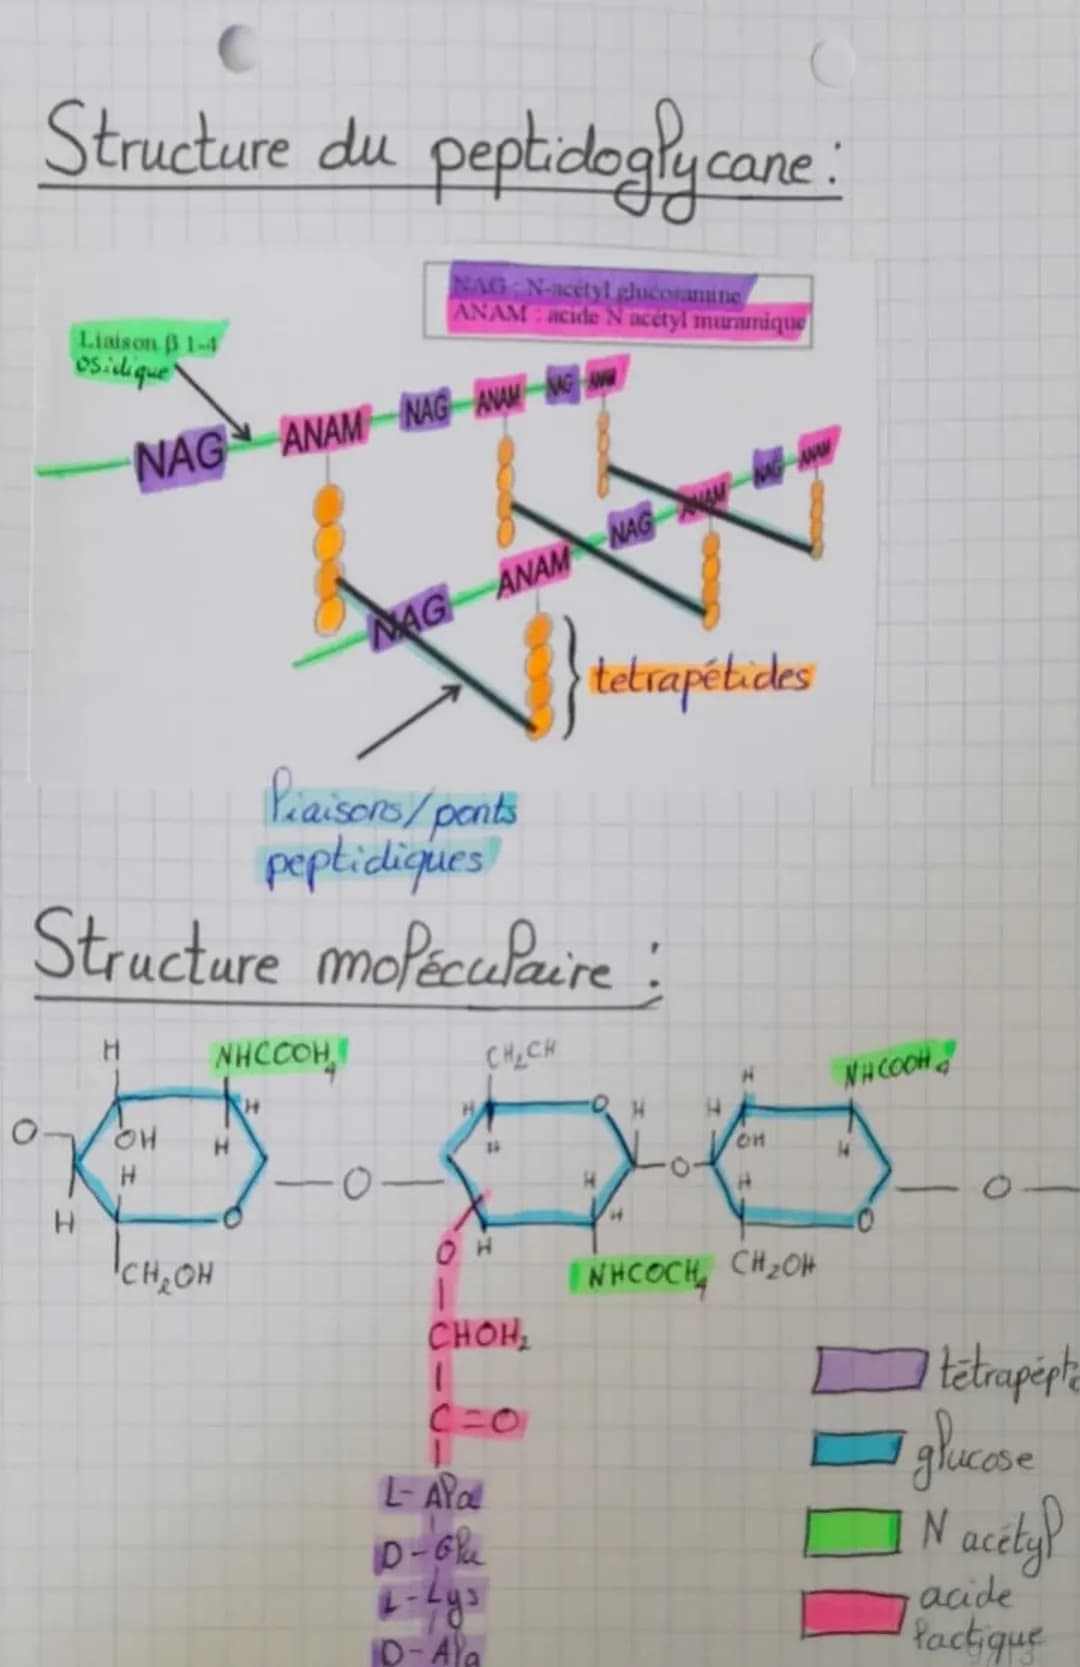 Structure du peptidoglycane :
NAG : N-acétyl glucosamine
ANAM : acide N acétyl muramique
Liaison β 1-4
osidique
NAG ANAM NAG ANAM NAG ANAM
NAG ANAM NAG ANAM NAG ANAM
tetrapétides
liaisons/ponts
peptidiques
Structure moléculaire :
H NHCOOH4 CH2CH H NHCOOH4
H H O H H
O OH H H OH H
H H H
O O O
H O H H O
CH2OH O H NHCOCH4 CH2OH
CHOH2
C=O
L-Ala
D-Glu
L-Lys
D-Ala
glucose
N acétyl
acide
lactique